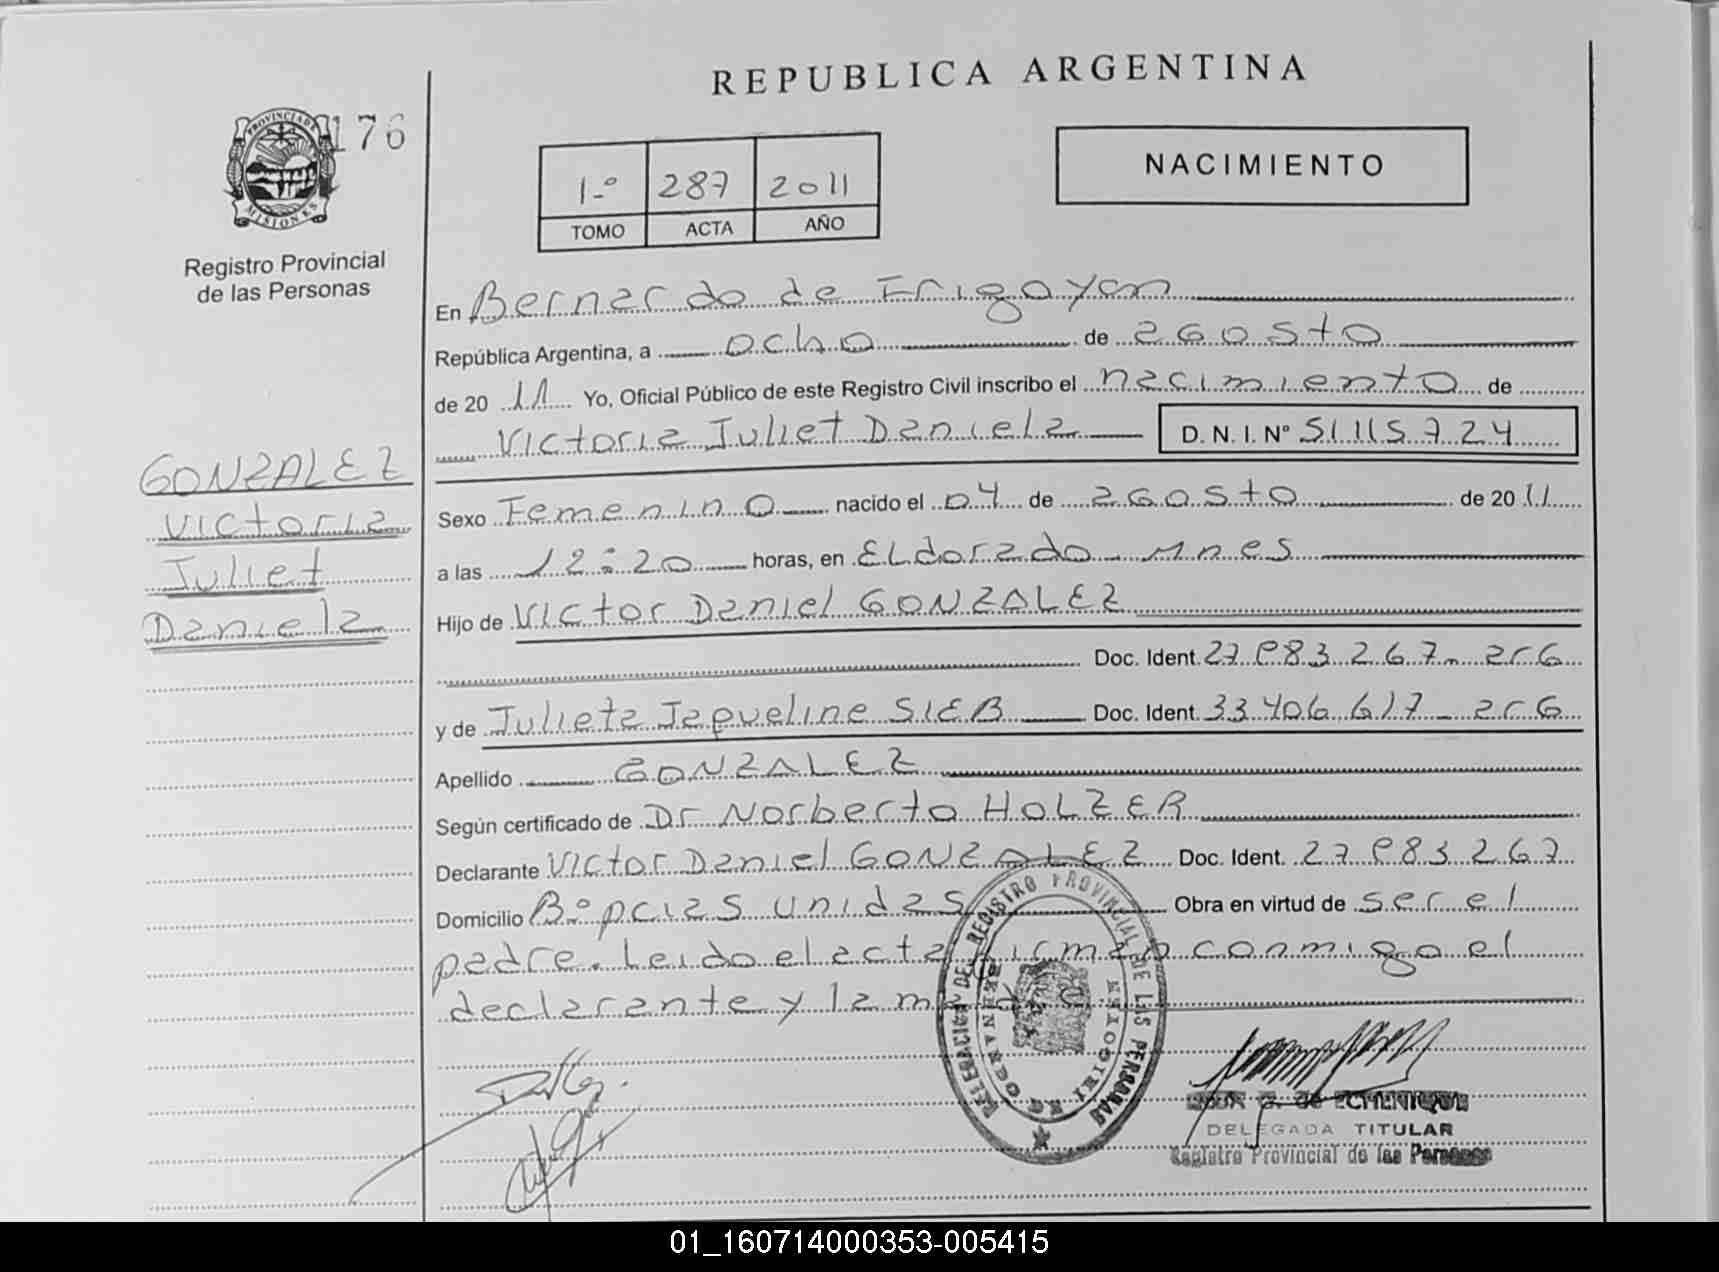 REPUBLICA ARGENTINA
176
PROVINCIA DE
MISIONES
Registro Provincial
de las Personas
1º 287 2011
TOMO ACTA AÑO
NACIMIENTO
En Bernardo de Irigoyen
República Argentina, a ocho de agosto
de 20 11 Yo, Oficial Público de este Registro Civil inscribo el nacimiento de
Victoria Juliet Daniela D. N. I. Nº 51.115.724
GONZALEZ
Victoria
Juliet
Daniela
Sexo Femenino nacido el 04 de agosto de 20 11
a las 12:20 horas, en Eldorado Mnes
Hijo de Victor Daniel GONZALEZ
Doc. Ident. 27.883.267- arg
y de Julieta Jaqueline SIEB Doc. Ident. 33.406.617- arg
Apellido GONZALEZ
Según certificado de Dr Norberto HOLZER
Declarante Victor Daniel GONZALEZ Doc. Ident. 27.883.267
Domicilio Bº pcias unidas Obra en virtud de ser el
padre. Leido el acta firman conmigo el
declarante y la
DELEGACION DEL REGISTRO PROVINCIAL DE LAS PERSONAS
BERNARDO DE IRIGOYEN
de ECHENIQUE
DELEGADA TITULAR
Registro Provincial de las Personas
01_160714000353-005415